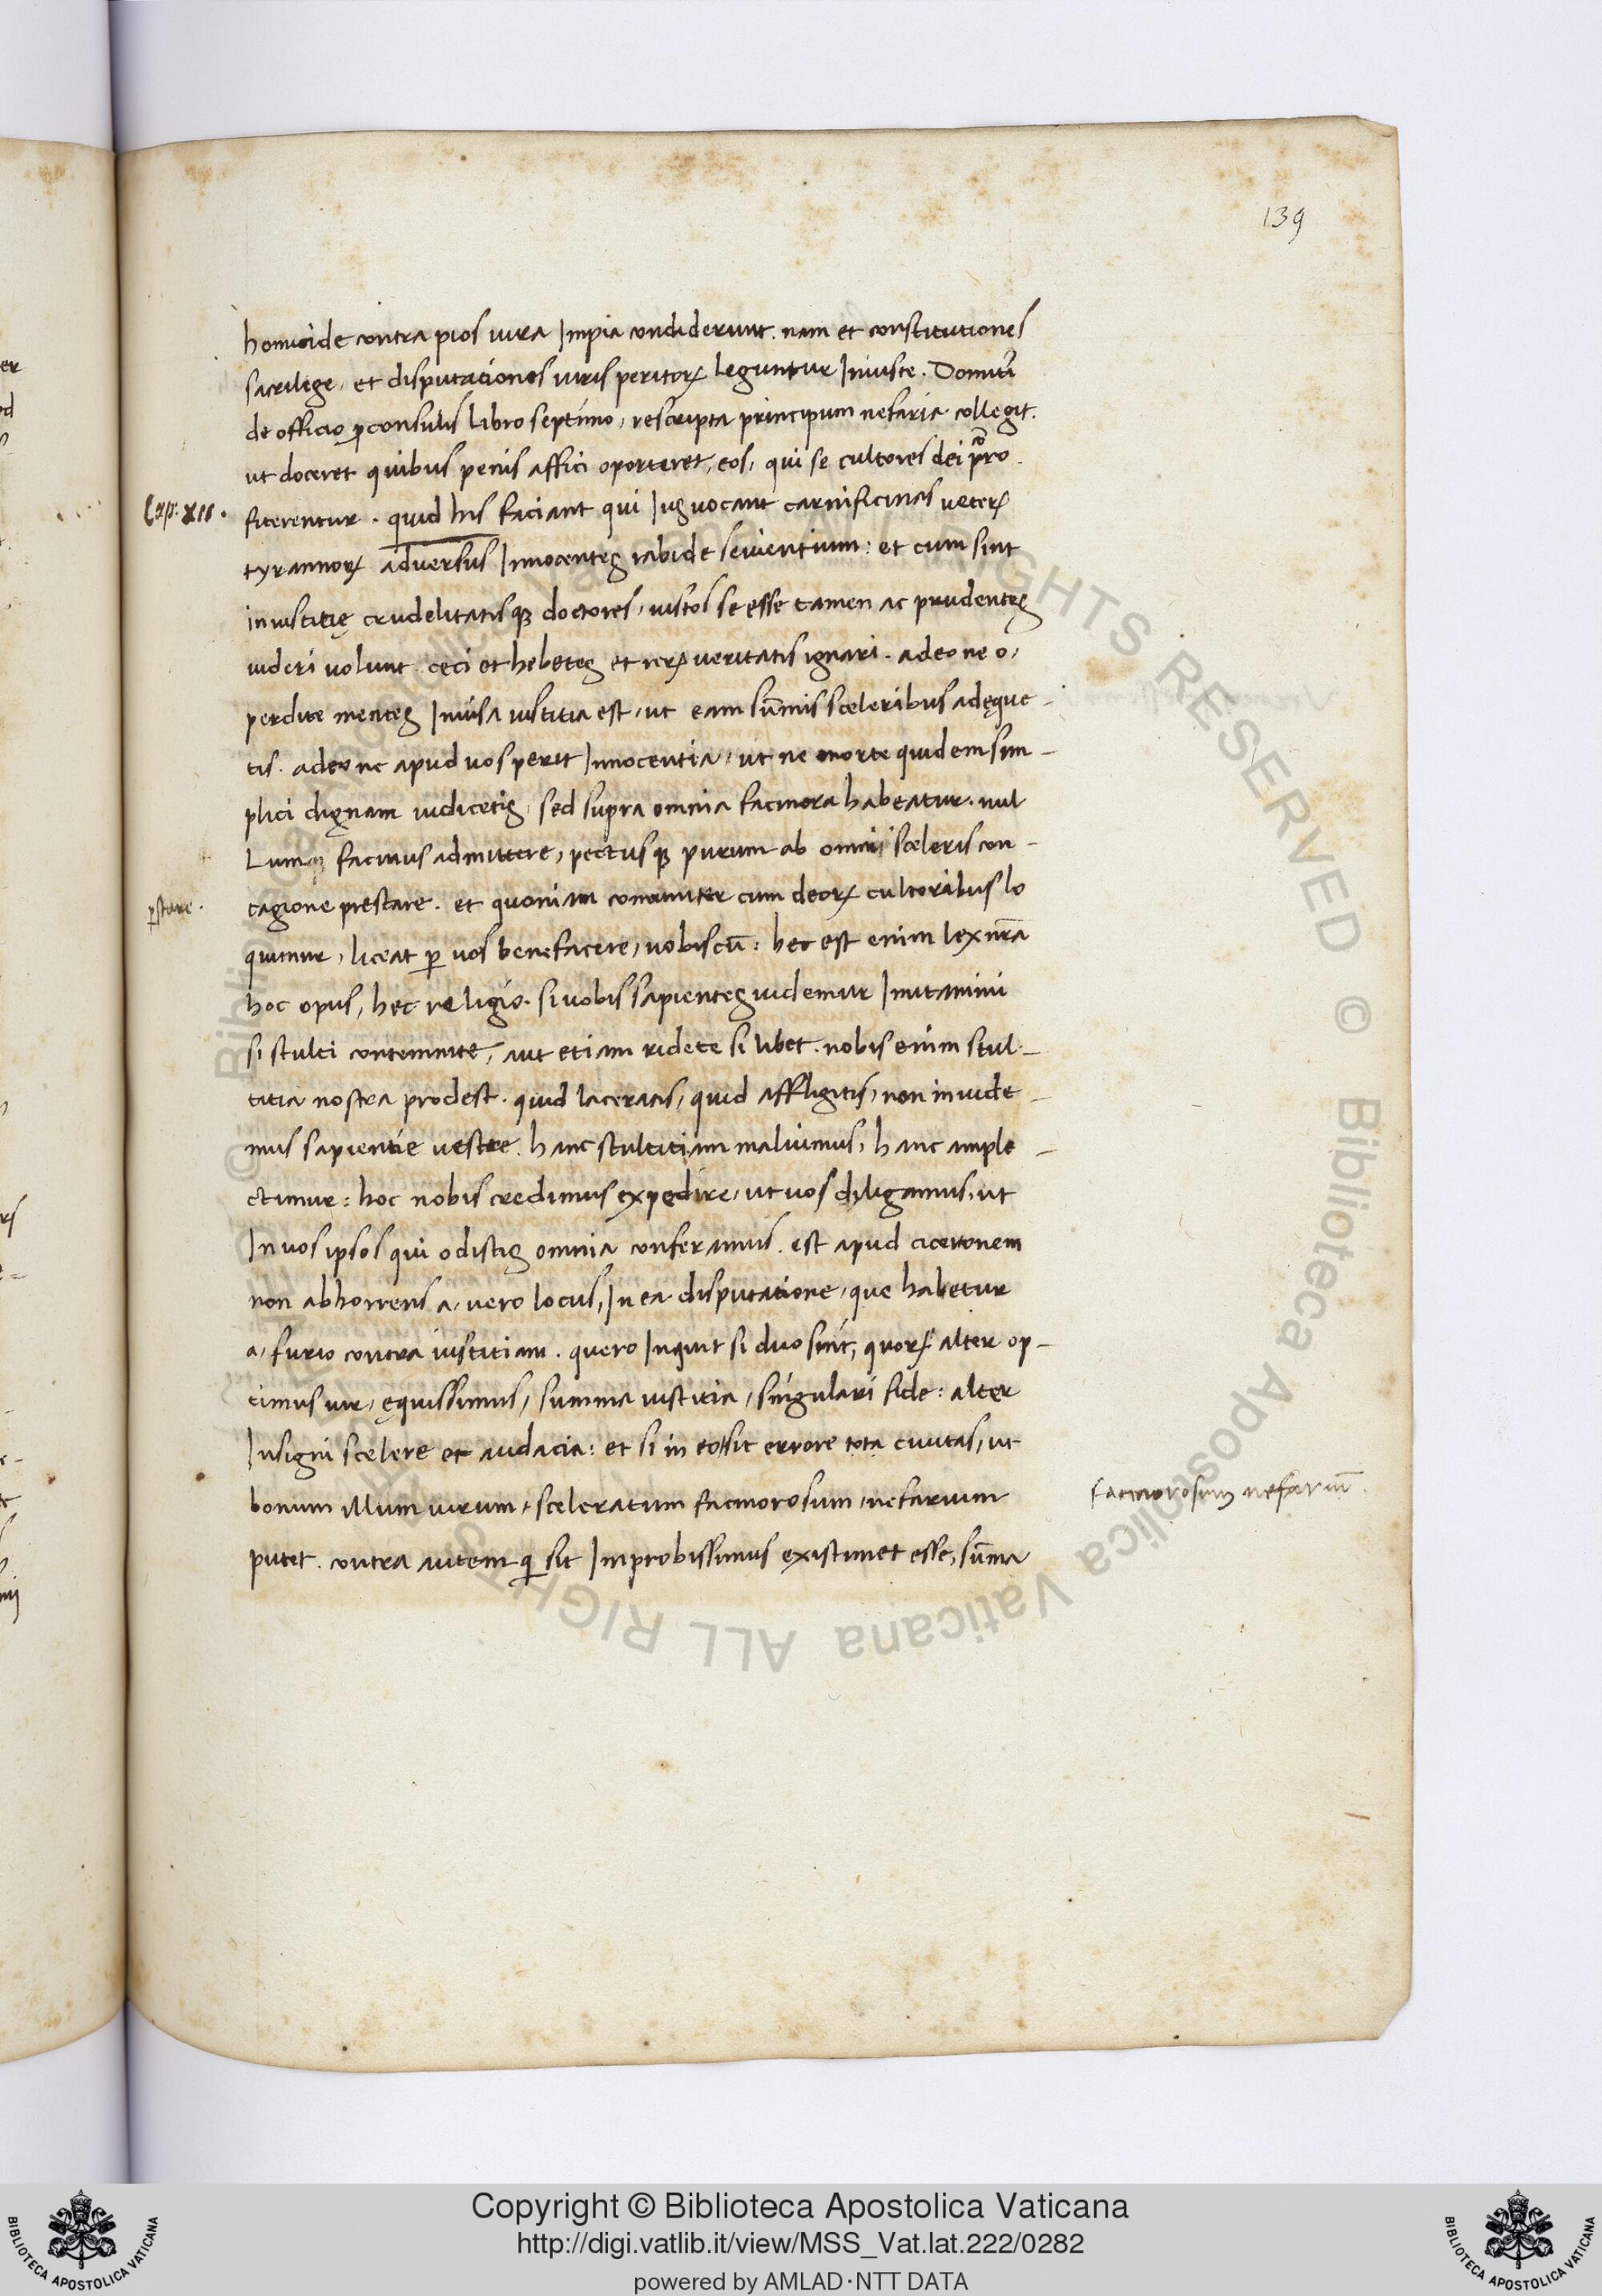 139
homicide contra pios iura Impia condiderunt. nam et constitutiones
sacrilege, et disputationes iuris peritoꝝ leguntur Iniuste. Domitĩ
de officio ꝓconsulis libro septimo, rescripta principum nefaria collegit.
ut doceret quibus penis affici oporteret, eos, qui se cultores dei pro
Cap: XII.
fiterentur. quid his faciant qui Iuꝫ uocant carnificinas ueteꝝ
tyrannoꝝ adversus Innocenteꝫ rabide seuientium: et cum sint
iniustitię crudelitatisqꝫ doctores, iustos se esse tamen ac prudenteꝫ
uideri volunt. ceci et hebeteꝫ et reꝝ veritatis ignari. adeo ne o,
perdite menteꝫ Inuisa iustitia est, ut eam sũmis sceleribus adęque-
tis. adeo ne apud uos perit Innocentia, ut ne morte quidem sim-
plici dignam iudicetiꝫ, sed supra omnia facinora habeatur. nul
lum facinus admittere, pectusqꝫ purum ab omni sceleris con-
ꝑstare.
tagione prestare. et quoniam comuniter cum deoꝝ cultoribus lo
quimur, liceat ꝑ uos benefacere, uobiscũ: hec est enim lex nr̃a
hoc opus, hec religio. si uobis sapienteꝫ uidemur Imitamini
si stulti contemnite, aut etiam ridete si libet. nobis enim stul-
titia nostra prodest. quid laceratis, quid affligitis, non inuide-
mus sapientie vestre. hanc stultitiam malumus, hanc ample-
ctimur: hoc nobis credimus expedire, ut uos dyligamus, ut
In uos ipsos qui odistiꝫ omnia conferamus. est apud ciceronem
non abhorrens a, vero locus, In ea disputatione, que habetur
a, furio contra iustitiam. quero Inquit si duo sint, quoꝝ alter op-
timus uir, ęquissimus, summa iustitia, singulari fide: alter
Insigni scelere et audacia: et si in eo sit errore tota ciuitas, ut
bonum illum uirum, sceleratum facinorosum, nefarium
facinorosum nefariũ.
putet. contra autem qi sit Improbissimus existimet esse, sũma
Copyright © Biblioteca Apostolica Vaticana
http://digi.vatlib.it/view/MSS_Vat.lat.222/0282
powered by AMLAD·NTT DATA
BIBLIOTECA APOSTOLICA VATICANA
BIBLIOTECA APOSTOLICA VATICANA
© Biblioteca Apostolica Vaticana ALL RIGHTS RESERVED